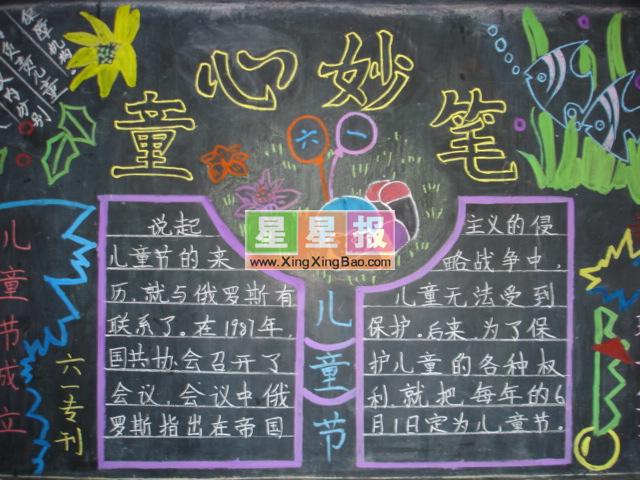 童心妙笔
保障机构
负责儿童
分别
六一
星星报
www.XingXingBao.com
儿童节成立
六一专刊
说起
儿童节的来
历,就与俄罗斯有
联系了.在1987年,
国共协会召开了
会议,会议中俄
罗斯指出在帝国
儿童节
主义的侵
略战争中,
儿童无法受到
保护.后来,为了保
护儿童的各种权
利,就把每年的6
月1日定为儿童节.